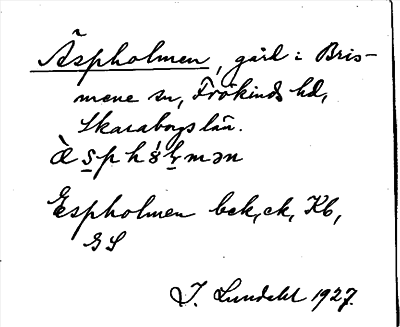 Äspholmen, gård i Bris-
mene sn, Frökinds hd,
Skaraborgs län.
Espholmen bek, ck, Kb,
GS
I. Lundahl 1927.